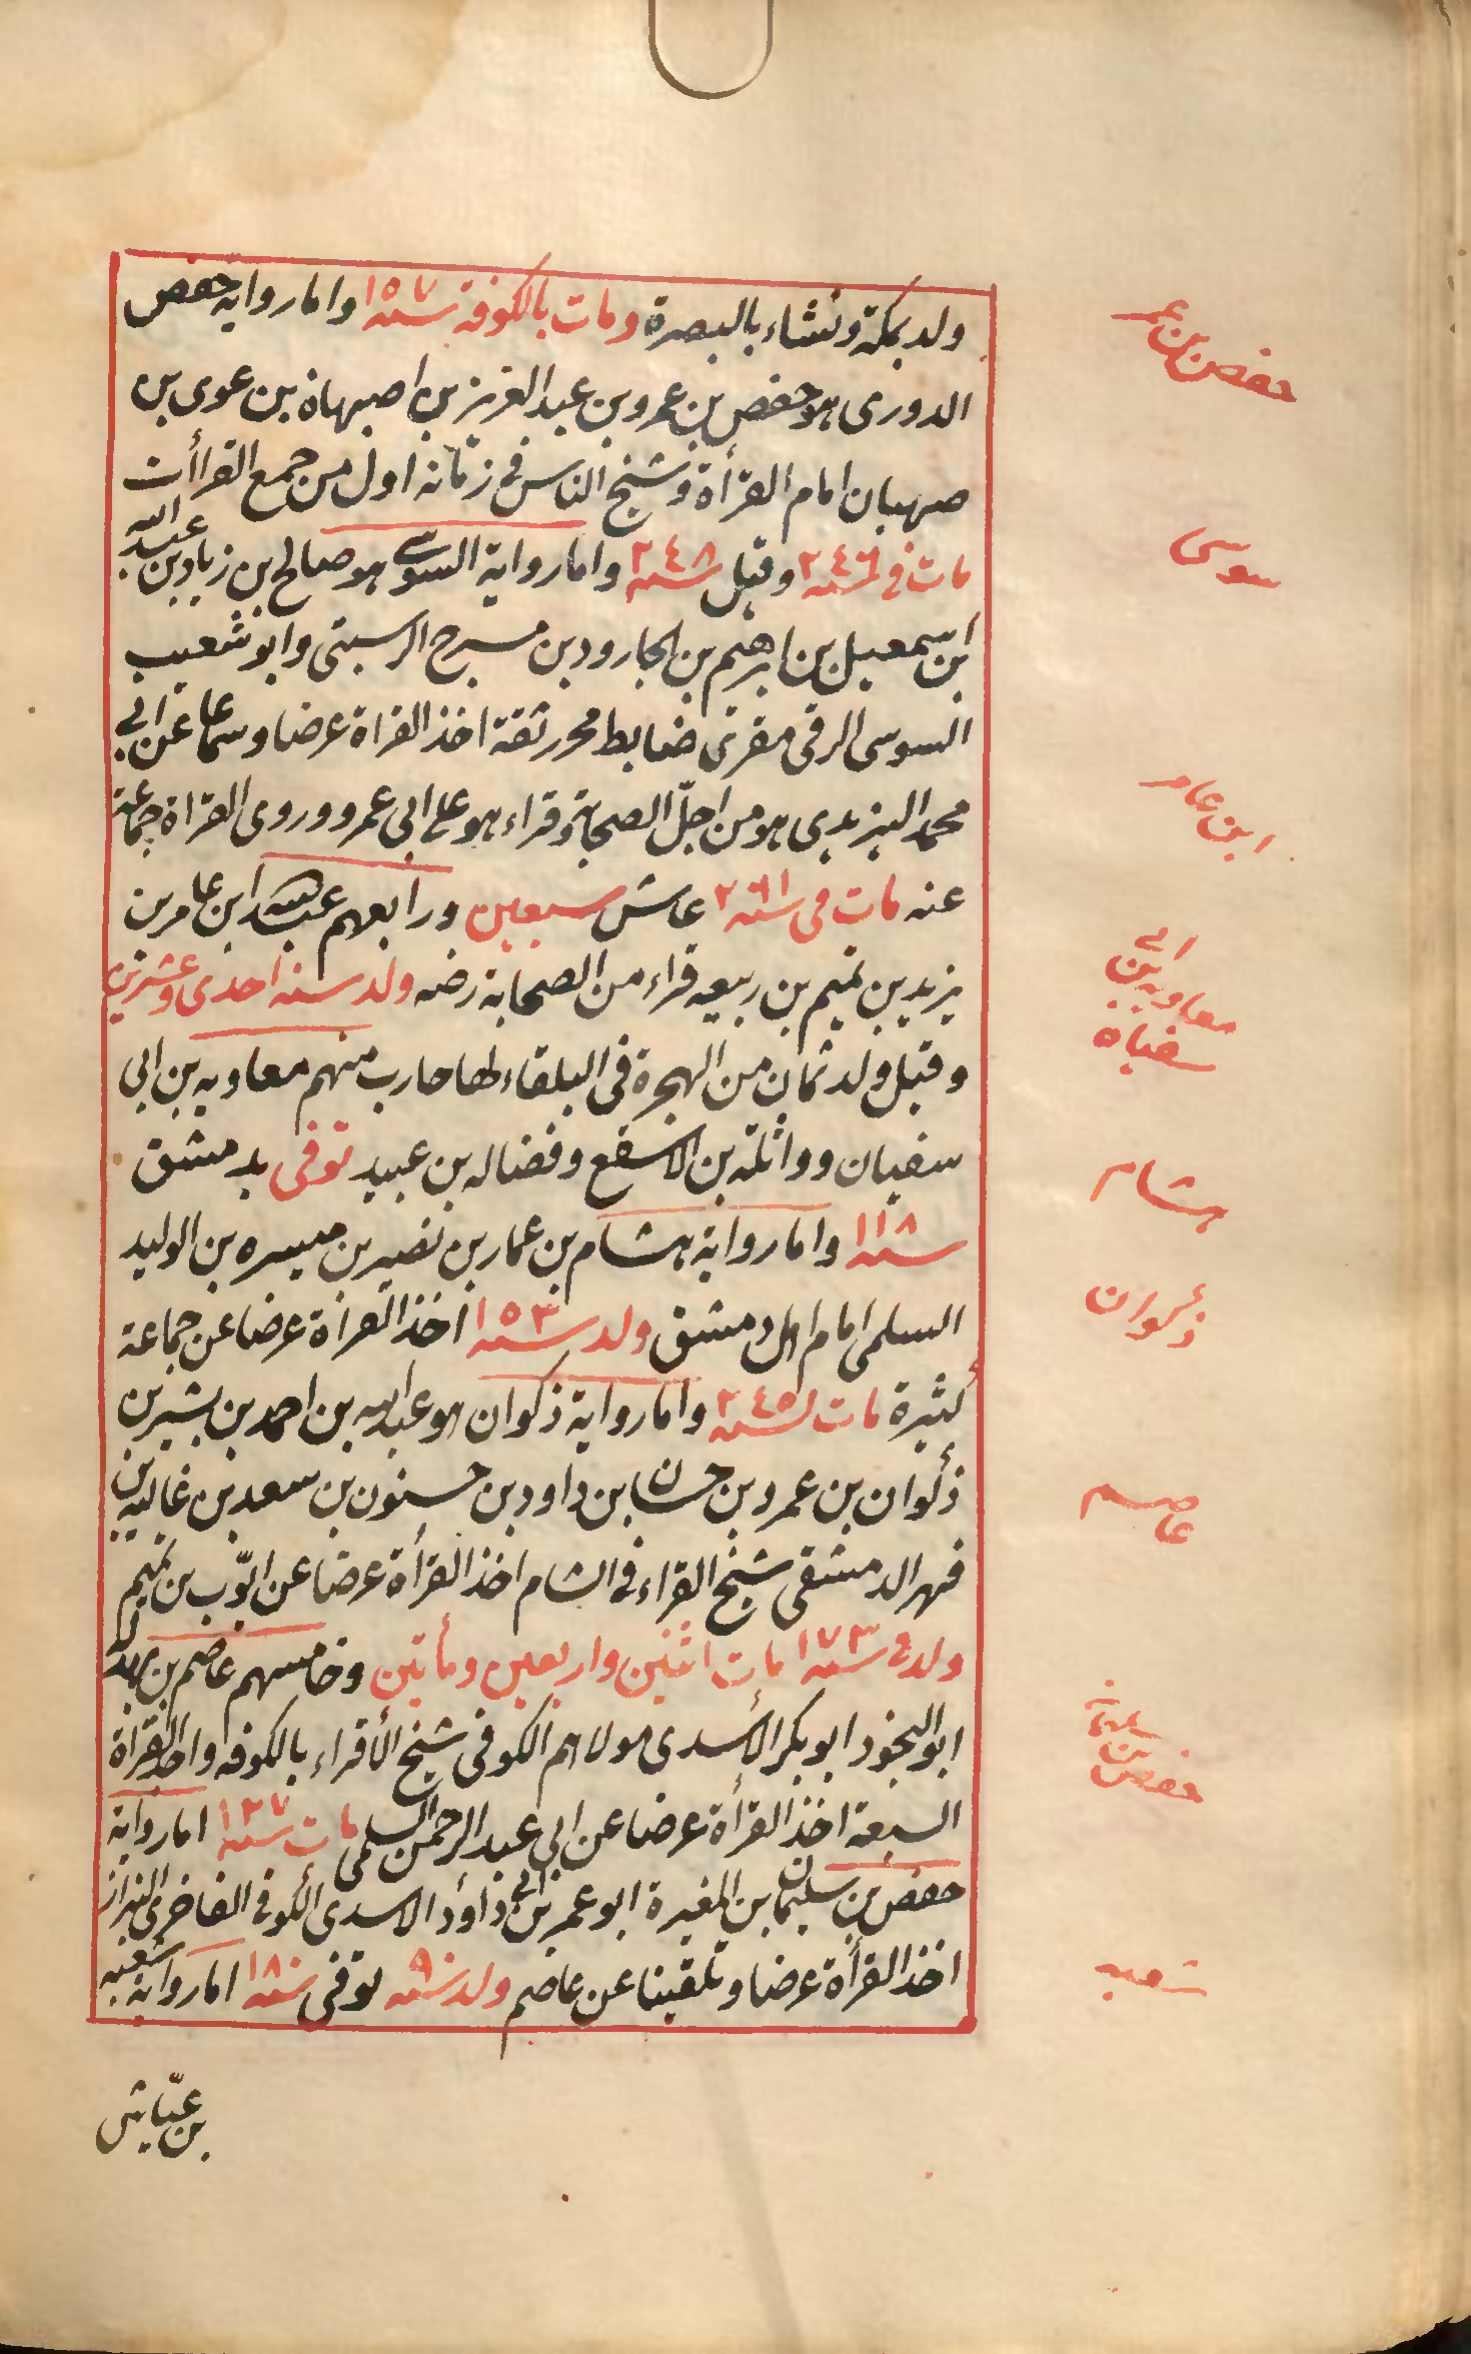 ولد بمكة ونشاء بالبصرة ومات بالكوفة سنه ١٥٧ واما رواية حفص
الدورى هو حفص بن عمرو بن عبد العزيز بن اصبهاة بن عوى بن
صهبان امام القرأة وشيخ الناس فى زمانه اول من جمع القراأت
مات فى سنه ٢٤٦ وقيل سنه ٢٤٨ واما رواية السوسى هو صالح بن زياد بن عبد الله
ابن اسمعيل بن ابرهيم بن الجارود بن مسرح الرستبى وابو شعيب
السوسى الرقى مقرئ ضابط محرر ثقة اخذ القراة عرضا وسماعا عن ابى
محمد اليزيدى هو من اجلّ الصحابة وقراء هو على ابى عمرو وروى القراة جماعة
عنه مات فى سنه ٢٦١ عاش سبعين ورابعهم عبد الله ابن عامر بن
يزيد بن تميم بن ربيعه قراء من الصحابة رضه ولد سنه احدى وعشرين
وقيل ولد ثمان من الهجرة فى البلقاء لها حارب منهم معاويه بن ابى
سفيان وواثلة بن الاسقع وفضاله بن عبيد توفى بدمشق
سنه ١١٨ واما رواية هشام بن عمار بن نصير بن ميسره بن الوليد
السلمى امام اهل دمشق ولد سنه ١٥٣ اخذ القرأة عرضا عن جماعة
كثيرة مات سنه ٢٤٥ واما رواية ذكوان هو عبد الله بن احمد بن بشير بن
ذكوان بن عمرو بن حسان ابن داود بن حسنون بن سعد بن غاليه بن
فهر الدمشقى شيخ القراء فى الشام اخذ القرأة عرضا عن ايّوب بن تميم
ولد فى سنه ١٧٣ مات اثنين واربعين ومأتين وخامسهم عاصم بن بهدلة
ابو النجود ابو بكر الأسدى مولاهم الكوفى شيخ الأقراء بالكوفه واحد القراة
السبعة اخذ القرأة عرضا عن ابى عبد الرحمن السلمى مات سنه ١٢٧ اما رواية
حفص بن سليمان بن المغيرة ابو عمر بن ابى داود الاسدى الكوفى الفاخرى البزاز
اخذ القرأة عرضا وتلقينا عن عاصم ولد سنه ٩٠ توفى سنه ١٨٠ اما رواية شعبه
بن عيّاش
حفص بن عمر
سوسى
ابن عامر
معاويه بن ابى
سفياة
هشام
ذكوان
عاصم
حفص بن
شعبه